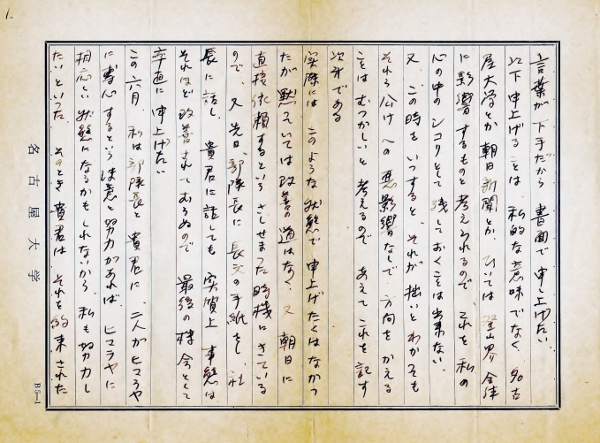 言葉が下手だから書面で申し上げたい。
以下申上げることは、私的な意味でなく、名古
屋大学とか朝日新聞とか、ひいては登山界全体
に影響するものと考えられるので、これを私の
心の中のシコリとして残しておくことは出来ない。
又、この時をいつすると、それが拙いとわかっても
それら公けへの悪影響なしで、方向をかえる
ことはむつかしいと考えるので、あえてこれを記す
次第である
実際には、このような状態で申上げたくはなかっ
たが黙っていては改善の道はなく、又、朝日に
直接依頼するというさしせまった時機にきている
ので、又先日、部隊長に長文の手紙をし、社
長に話し、貴君に話しても、実質上事態は
それほど改善されておらぬので、最後の機会として
卒直に申上げたい。
この六月、私は部隊長と貴君に、二人がヒマラヤ
に専心するという決意と努力があれば、ヒマラヤに
相応しい状態になるかもしれないから、私も努力し
たいといった。そのとき貴君は、それを約束された
名古屋大学
B5—1